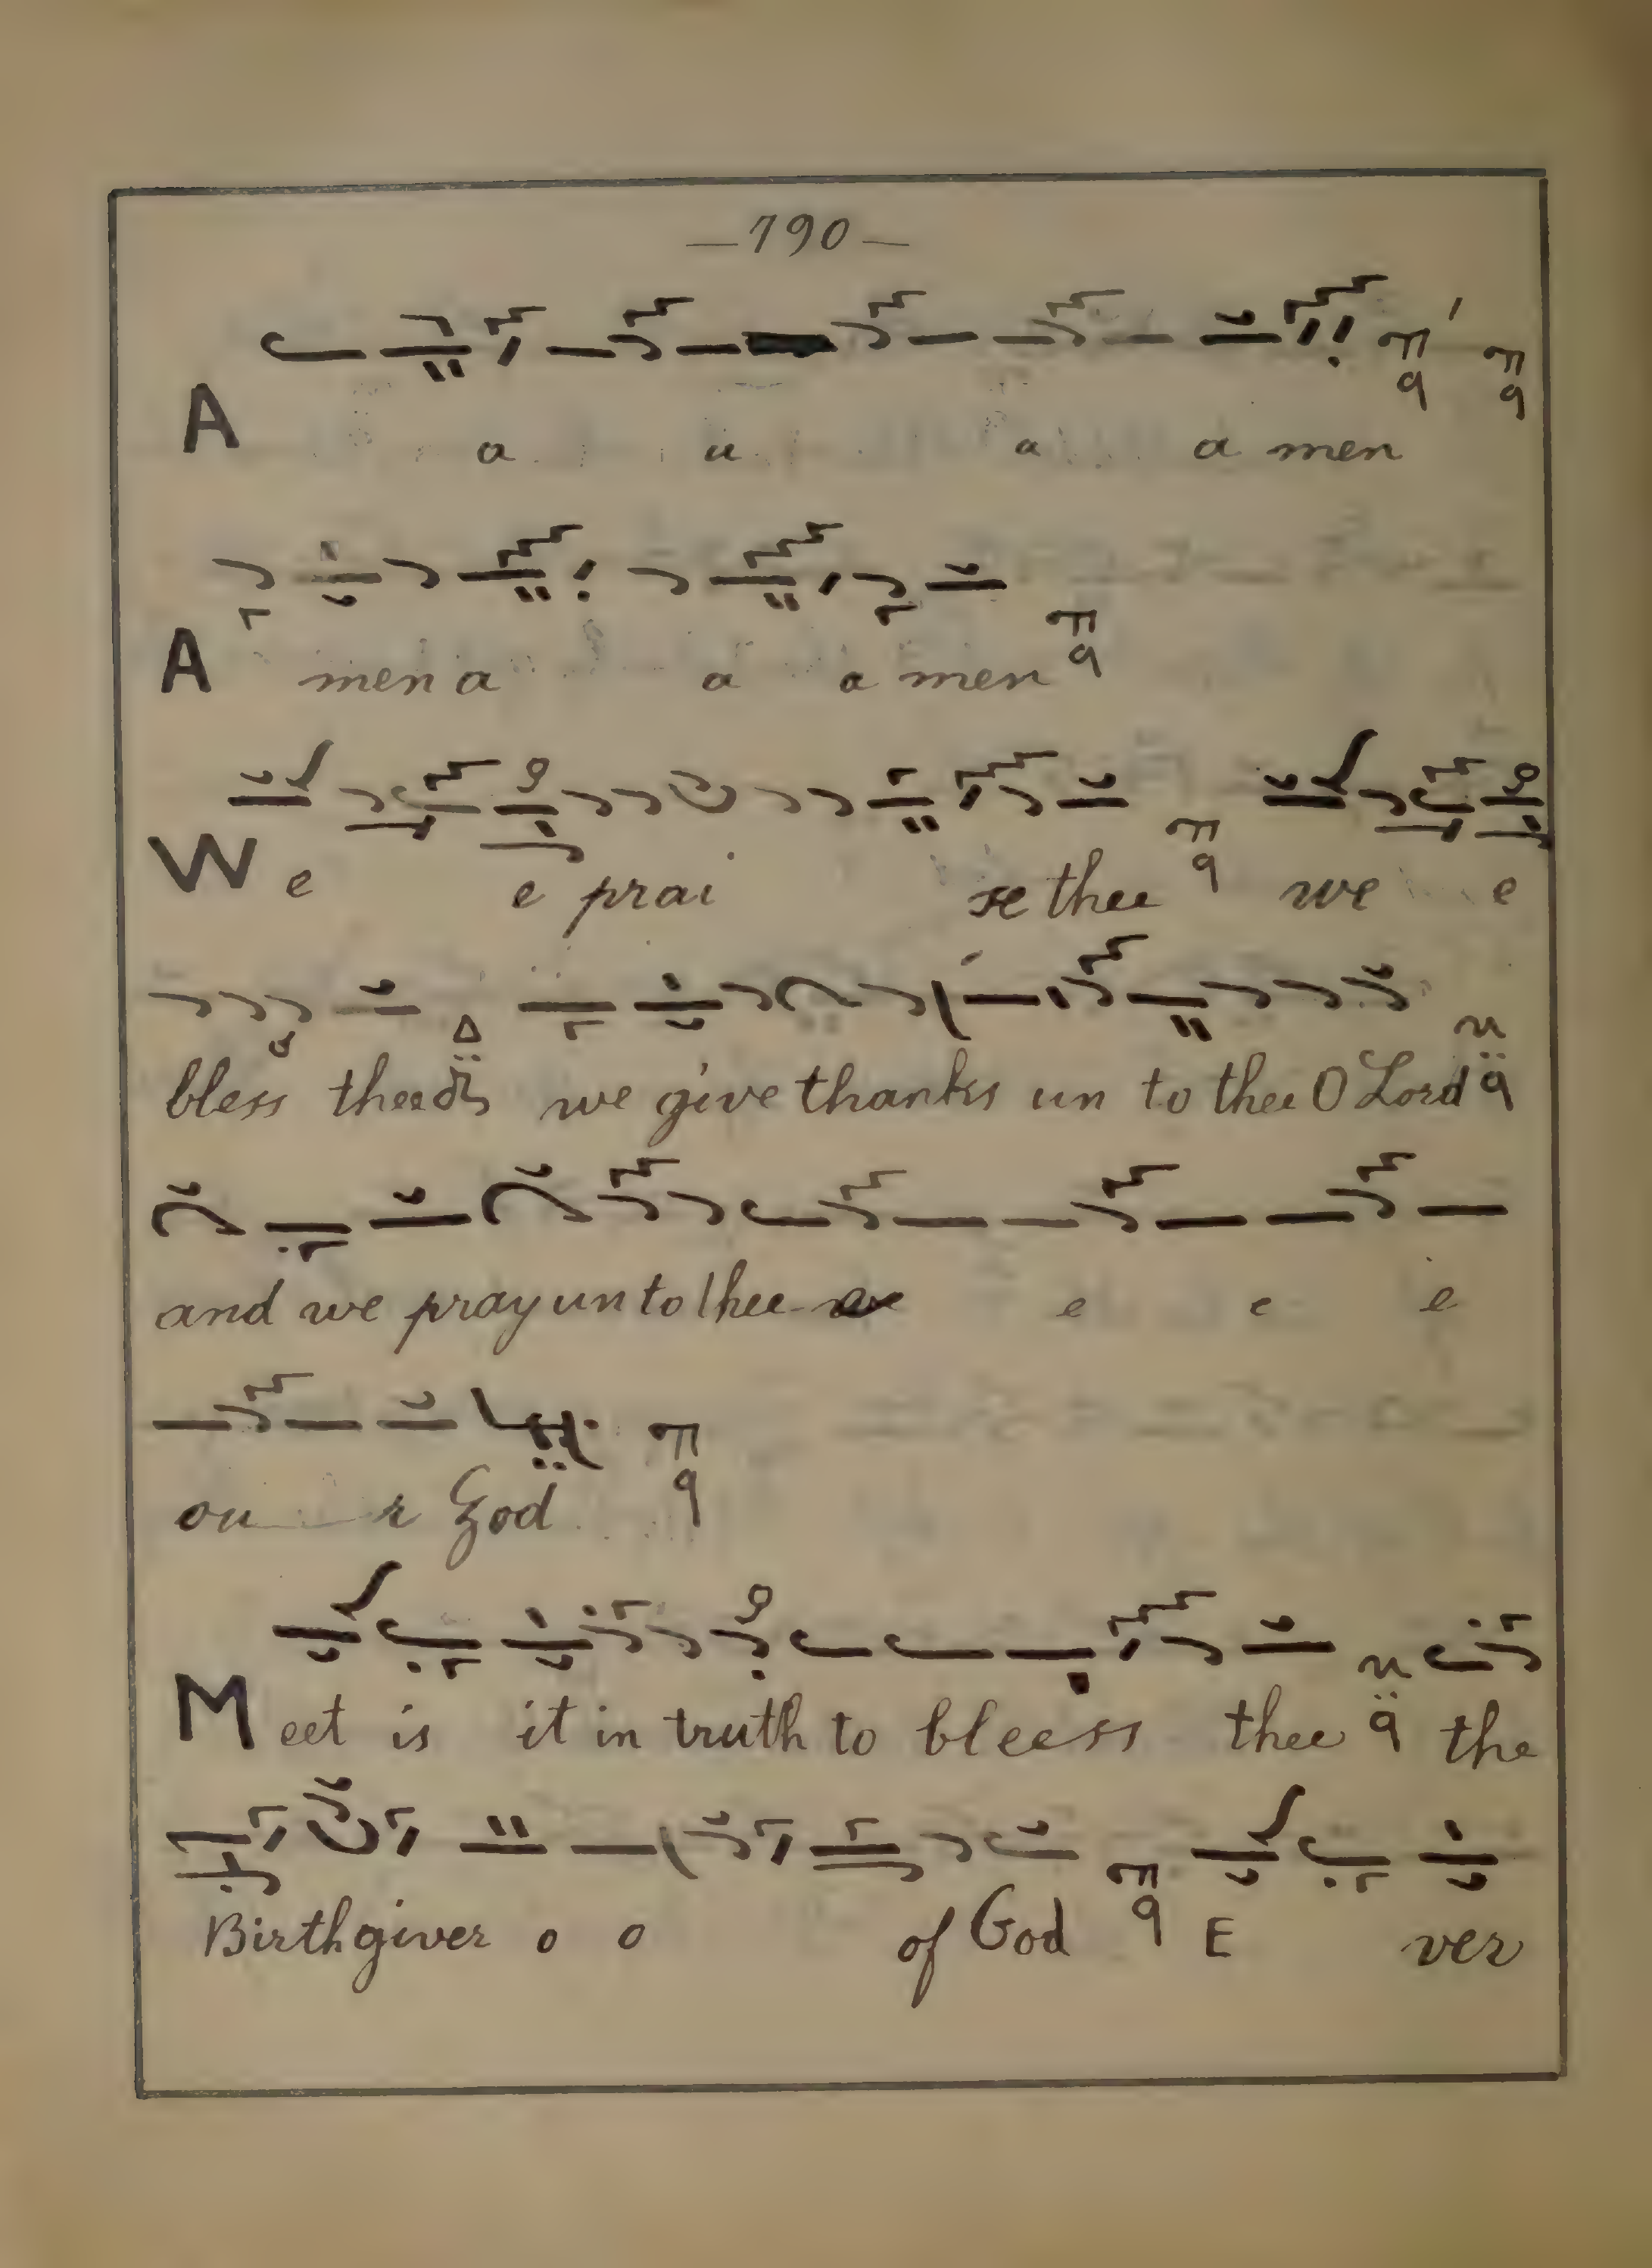 —190—
A a a a a men
A men a a a men
W e e prai se thee we e
bless thee we give thanks un to thee O Lord
and we pray un to thee e e e
ou r God
Meet is it in truth to bleess thee the
Birthgiver o o of God E ver